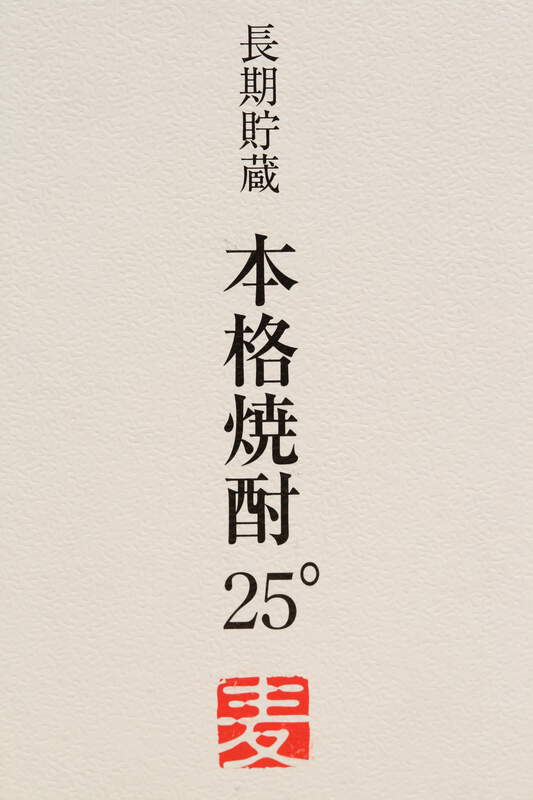 長期貯蔵
本格焼酎
25°
麦